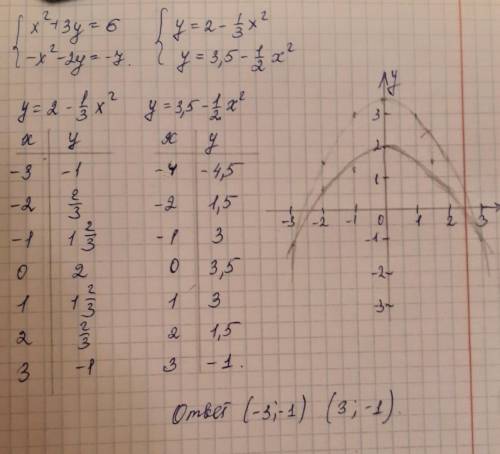 x²+3y=6
-x²-2y=-7.
y=2-1/3x²
y=3,5-1/2x²
y=2-1/3x²
x y
-3 -1
-2 2/3
-1 1 2/3
0 2
1 1 2/3
2 2/3
3 -1
y=3,5-1/2x²
x y
-4 -4,5
-2 1,5
-1 3
0 3,5
1 3
2 1,5
3 -1.
y
3
2
1
-3 -2 -1 0 1 2 3
-1
-2
-3
Ответ (-3;-1) (3;-1).